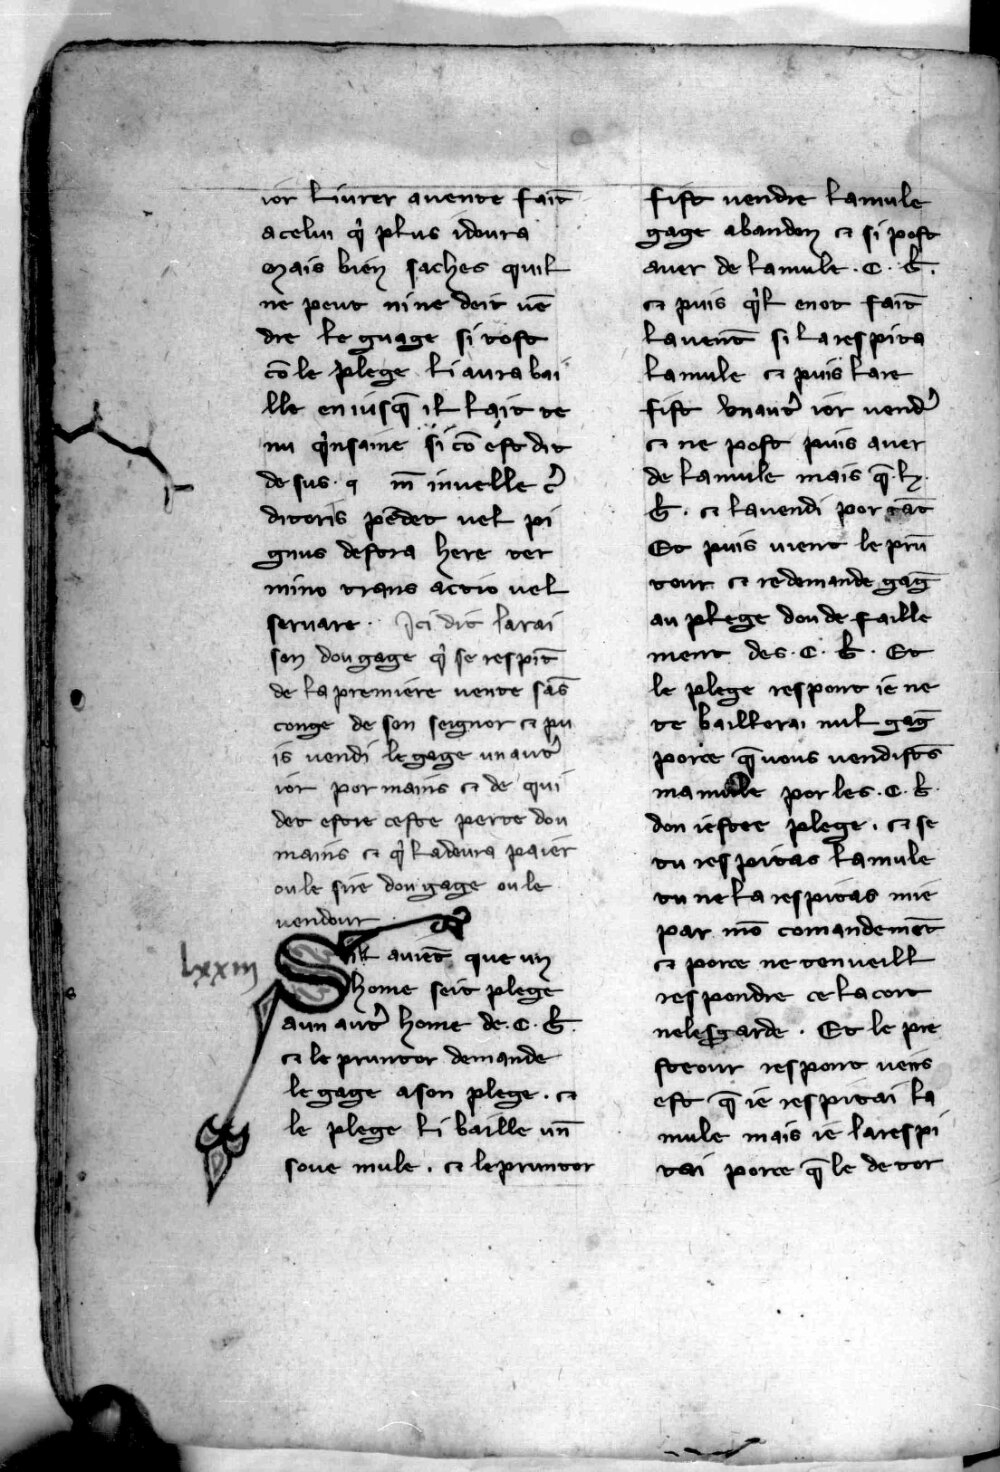 ior liurer auente fait̄
acelui q̍ plus idoura
Mais bien saches quil
ne peut ni ne doit uē
dre le guage si tost
cō le plege li aura bai
lle en iusq̄ il lait te
nu q̍nsaine si cō est dit
de sus. q m̄ inuelle c᷒
ditoris pēdet uel pi
gnus destra here ter
mino trans actio uel
seruare. Ici dit larai
son dou gage q̍ se respit̄
de la premiere uente sās
conge de son seignor ⁊ pu
is uendi le gage un autͬ
ior por mains ⁊ de qui
det estre ceste perte dou
mains ⁊ q̍ la deura paier
ou le sire dou gage ou le
uendour.
lxxiii
Sil auiēt que un
home seit plege
aun autͬ home de .C. b̄.
⁊ le pruntor demande
le gage ason plege. ⁊
le plege li baille un̄
soue mule. ⁊ le pruntor
fist uendre la mule
gage abandon ⁊ si post
auer de la mule .C. b̄.
⁊ puis q̍l enot fait̄
lauent̄ si la respita
la mule ⁊ puis la re
fist un autͬ ior uendͬ
⁊ ne post puis auer
de la mule mais q̄ .lx.
b̄. ⁊ la uendi por tāt
Et puis uient le prun̄
tour ⁊ redemande gaḡ
au plege dou de faille
ment des .C. b̄. Et
le plege respont ie ne
te baillerai nul gaḡ
porce q̄ uous uendistēs
ma mule por les .C. b̄.
don iestee plege. ⁊ se
tu respitas la mule
tu ne la respitas mie
par mō comandemēt
⁊ porce ne ten ueill
respondre ce la cort
nelesgarde. Et le pre
steour respont ueirs
est q̄ ie respitai la
mule mais ie la respi
tai porce q̄ le detor